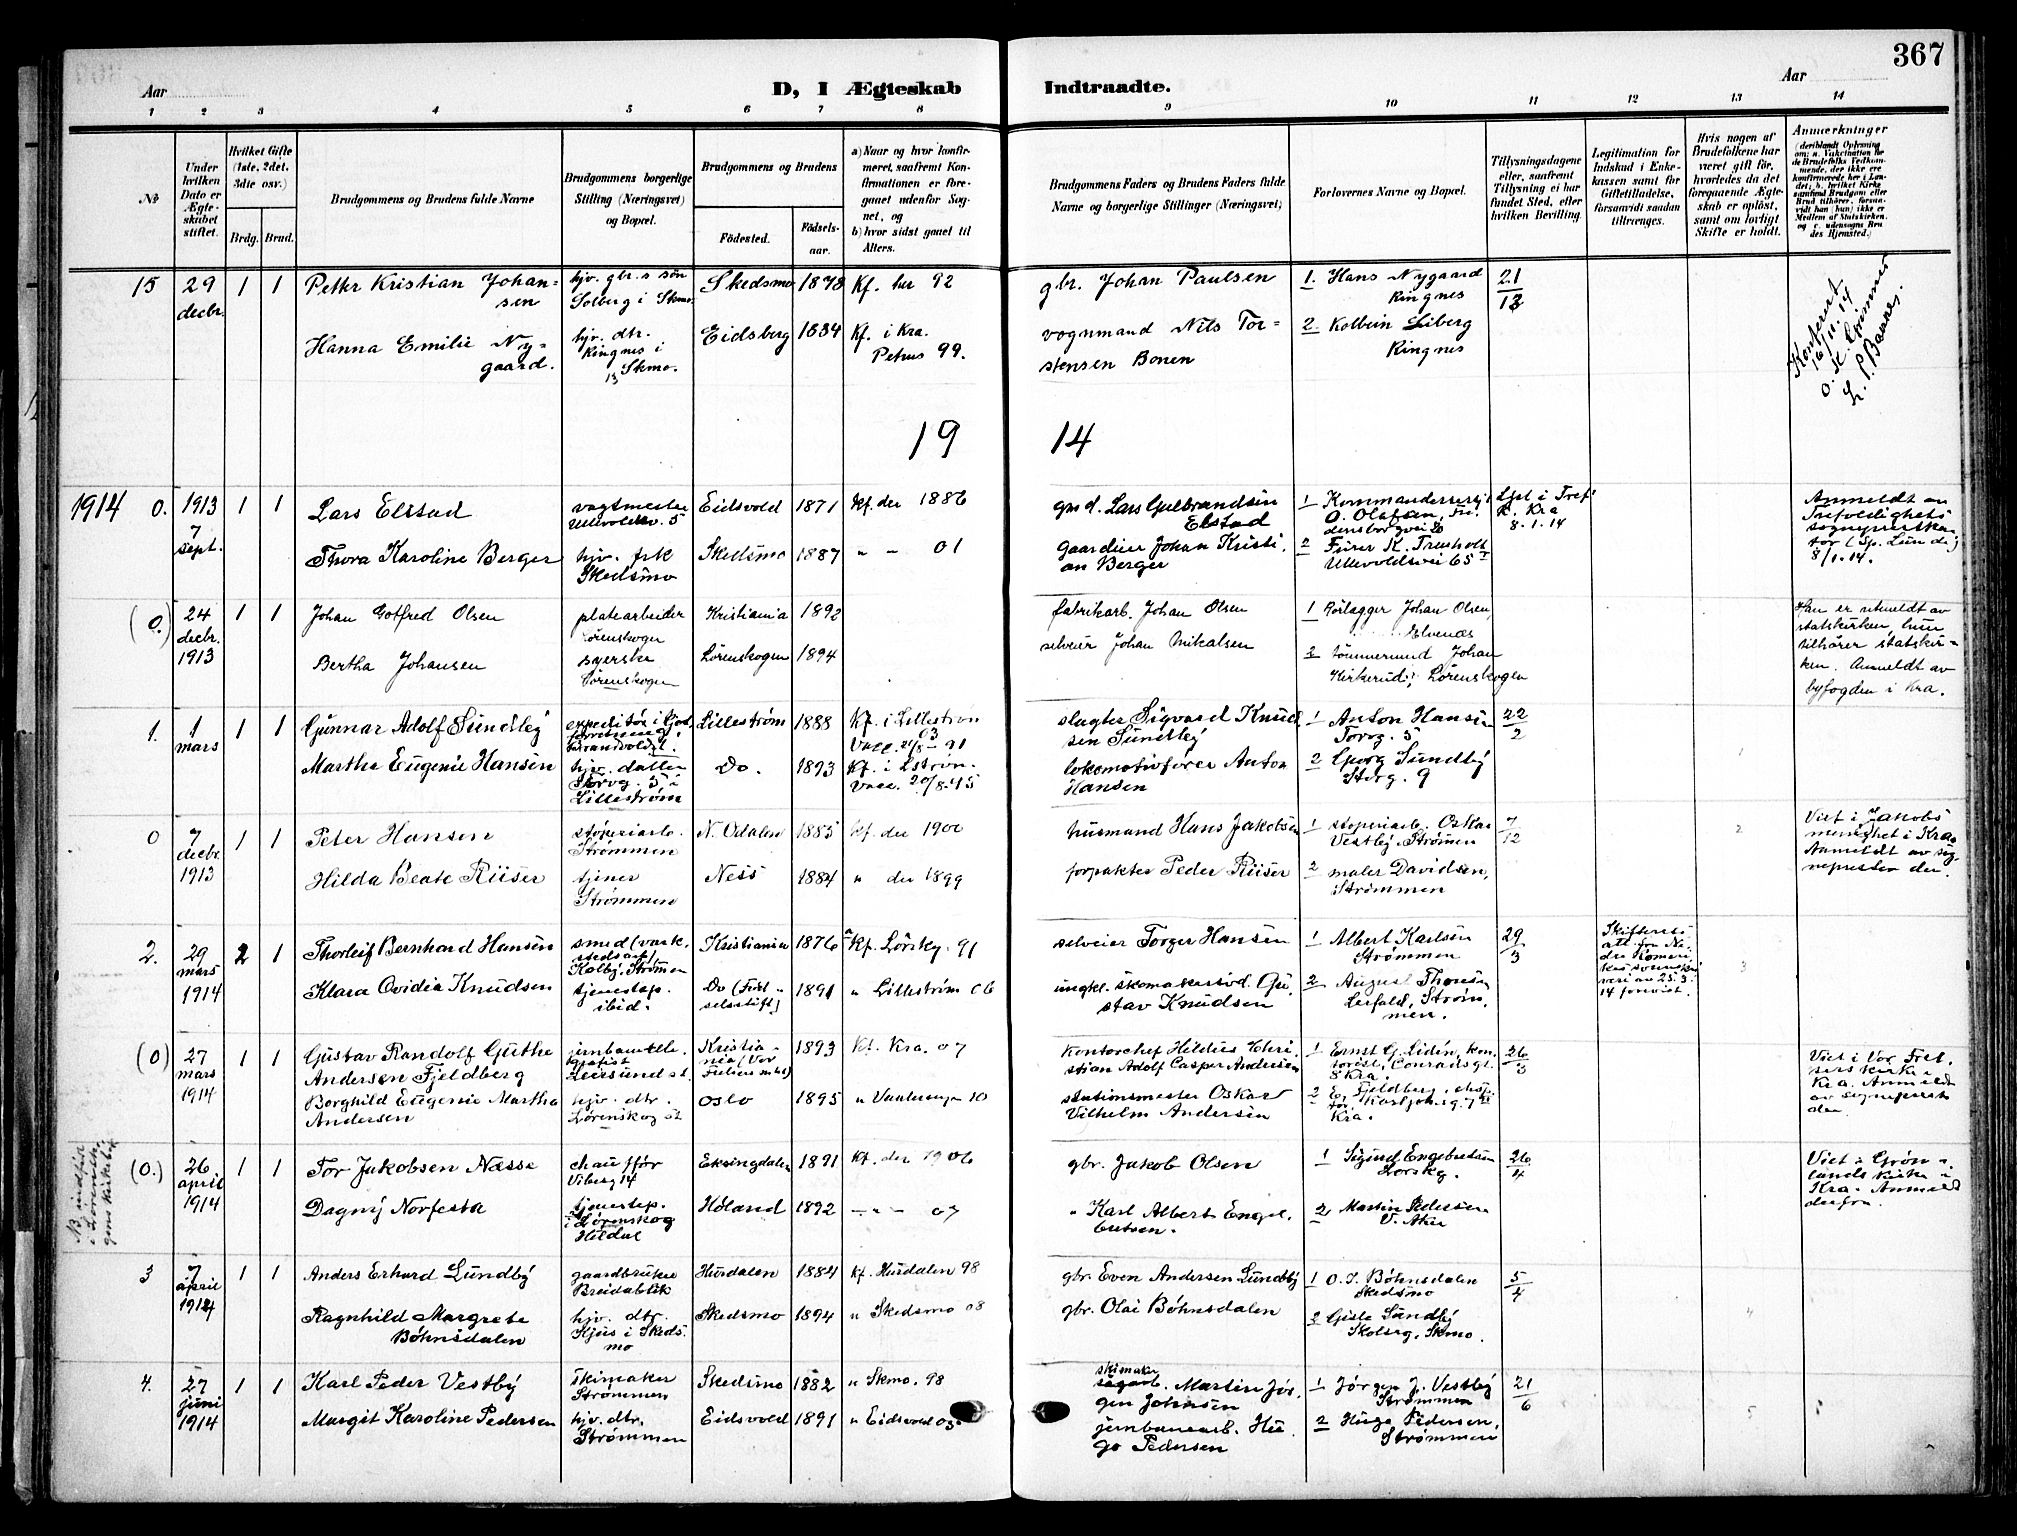 367
Aar
D, I Ægteskab
Indtraadte.
Aar
1 2 3 4 5 6 7 8 9 10 11 12 13 14
№
Under hvilken Dato er Ægteskabet stiftet.
Hvilket Gifte (1ste, 2det, 3die osv.)
Brdg.
Brud.
Brudgommens og Brudens fulde Navne
Brudgommens borgerlige Stilling (Næringsvei) og Bopæl.
Brudgommens og Brudens
Födested.
Födselsaar.
a) Naar og hvor konfirmeret, saafremt Konfirmationen er foregaaet udenfor Sognet, og
b) hvor sidst gaaet til Alters.
Brudgommens Faders og Brudens Faders fulde Navne og borgerlige Stillinger (Næringsvei)
Forlovernes Navne og Bopæl.
Tillysningsdagene eller, saafremt Tillysning ei har fundet Sted, efter hvilken Bevilling.
Legitimation for Indskud i Enkekassen samt for Giftetilladelse, forsaavidt saadan tiltrænges.
Hvis nogen af Brudefolkene har været gift för, hvorledes da det foregaaende Ægteskab er oplöst, samt om lovligt Skifte er holdt.
Anmerkninger
15
29 decbr.
1 1
Petter Kristian Johansen
hjv. gbr.s søn
Solberg i Skmo.
Skedsmo 1878
Kf. her 92
gbr. Johan Paulsen
1. Hans Nygaard
Ringnes
21/12
Hanna Emilie Nygaard.
hjv. dtr.
Ringnes i
Skmo.
Eidsberg 1884
Kf. i Kra.
Petrus 99.
vognmand Nils Torstensen Bonen
2. Kolbein Liberg
Ringnes
Konferert
16/11.14
19 14
1914 0.
1913
7 sept.
1 1
Lars Elstad
vagtmester
Ullevoldsv. 5
Eidsvold 1871
Kf. der 1886
gmd. Lars Gulbrandsen
Elstad
1 Kommandersersj.
O. Olafsen,
8.1.14
Anmeldt av
Trefoldigheds
8/1.14.
Thora Karoline Berger
hjv. frk
Skedsmo
Skedsmo 1887
" - 01
gaardeier Johan Kristian Berger
2 Furer K. Treuholt
Ullevoldsvei 65
(0.)
24 decbr. 1913
1 1
Johan Gotfred Olsen
platearbeider
Lørenskogen
Kristiania 1892
fabrikarb. Johan Olsen
1 Rørlægger Johan Olsen,
Elvenæs
Han er utmeldt av
statskirken, hun
tilhører statskirken. Anmeldt av
byfogden i Kra.
Bertha Johansen
syerske
Lørenskogen
Lørenskogen 1894
selveier Johan Mikalsen
2 tømmermand Johan
Kirkerud, Lørenskogen
1.
1 mars
1 1
Gunnar Adolf Sundby
Lillestrøm 1888
Kf. i Lillestrøm
03
slagter Sigvard Knudsen Sundby
1 Anton Hansen
Torvg. 5
22/2
Martha Eugenie Hansen
hjv. datter
Torvg. 5 i
Lillestrøm
Do. 1893
Kf. i Lstrøm.
lokomotivfører Anton
Hansen
2 Georg Sundby
Storg. 9
0
7 decbr 1913
1 1
Peter Hansen
støperiarb.
Strømmen
N. Odalen 1885
Kf. der 1900
husmand Hans Jakobsen
1 støperiarb. Oskar
Vestby, Strømen
7/12
Viet i Jakobs
menighet i Kra.
Anmeldt av sognepresten der.
Hilda Beate Riiser
tjener
Strømmen
Ness 1884
" der 1899
forpakter Peder Riiser
2 maler Davidsen,
Strømmen
2.
29 mars 1914
2 1
Thorleif Bernhard Hansen
smed (verkstedsarb)
Kolbj. Strømen
Kristiania 1876
Kf. Lørskg. 91
selveier Torger Hansen
1 Albert Karlsen
Strømmen
29/3
Klara Ovidia Knudsen
tjenestep.
ibid.
Do (Fødselsstift) 1891
" Lillestrøm 06
ungkl. skomakersvd. Gustav Knudsen
2 August Thoresen
Strømmen.
(0)
27 mars 1914
1 1
Gustav Randolf Guthe
Andersen Fjeldberg
Kristiania (Vor Frelsers mht) 1893
Kf. Kra. 07
kontorchef Hildus Christian Adolf Casper Andersen
1 Ernst G. Lidén, kontorist, Conradsgt.
8 Kra.
26/3
Viet i Vor Frelsers kirke i
Kra. Anmeldt
av sogneprest
der.
Borghild Eugenie Martha
Andersen
hjv. dtr.
Lørenskog st
Oslo 1895
" Vaalerengen 10
stationsmester Oskar
Vilhelm Andersen
2 E. Fjeldberg,
Karl Johansg. 7
Kra.
NB indført
i Lørenskogens kirkebok
(0.)
26 april 1914
1 1
Tor Jakobsen Næsse
chauffør
Viberg 14
Eksingdalen 1891
Kf. der 1906
gbr. Jakob Olsen
1 Sigurd Engebretsen
Lørskg.
26/4
Viet i Grønlands kirke i
Kra. Anmeldt
derfra.
Dagny Norfesta
tjenestep.
i Lørenskog
Høland 1892
— " — 07
" Karl Albert Engebretsen.
2 Martin Pedersen
3
7 april 1914
1 1
Anders Erhard Lundby
gaardbruker
Breidablik
Hurdalen 1884
Kf. Hurdalen 98
gbr. Even Andersen Lundby
1 O. J. Bøhnsdalen
Skedsmo
5/4
Ragnhild Margrete
Bøhnsdalen
hjv. dtr.
Kjus i Skedsmo
Skedsmo 1894
" Skedsmo 08
gbr. Olai Bøhnsdalen
2 Gisle Sundby
Skolseg, Skmo.
4.
27 juni 1914
1 1
Karl Peder Vestby
skimaker
Strømmen
Skedsmo 1882
" Skmo. 98
skimaker
Martin Jørgen Johnsen
1 Jørgen J. Vestby
Strømmen
21/6
Margit Karoline Pedersen
hjv. dtr.
Strømmen
Eidsvold 1891
" Eidsvold 05
jernbanearb. Hugo Pedersen
2 Hugo Pedersen,
Strømmen